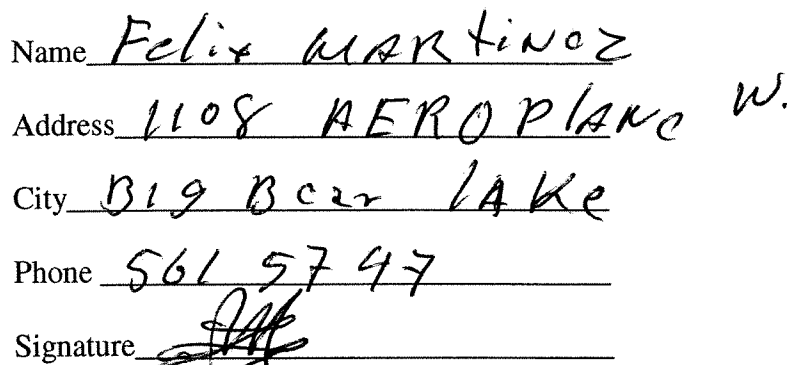 Name Felix MARtiNez
Address 1108 AEROPlANe W.
City BIg Bear lAKe
Phone 561 5747
Signature